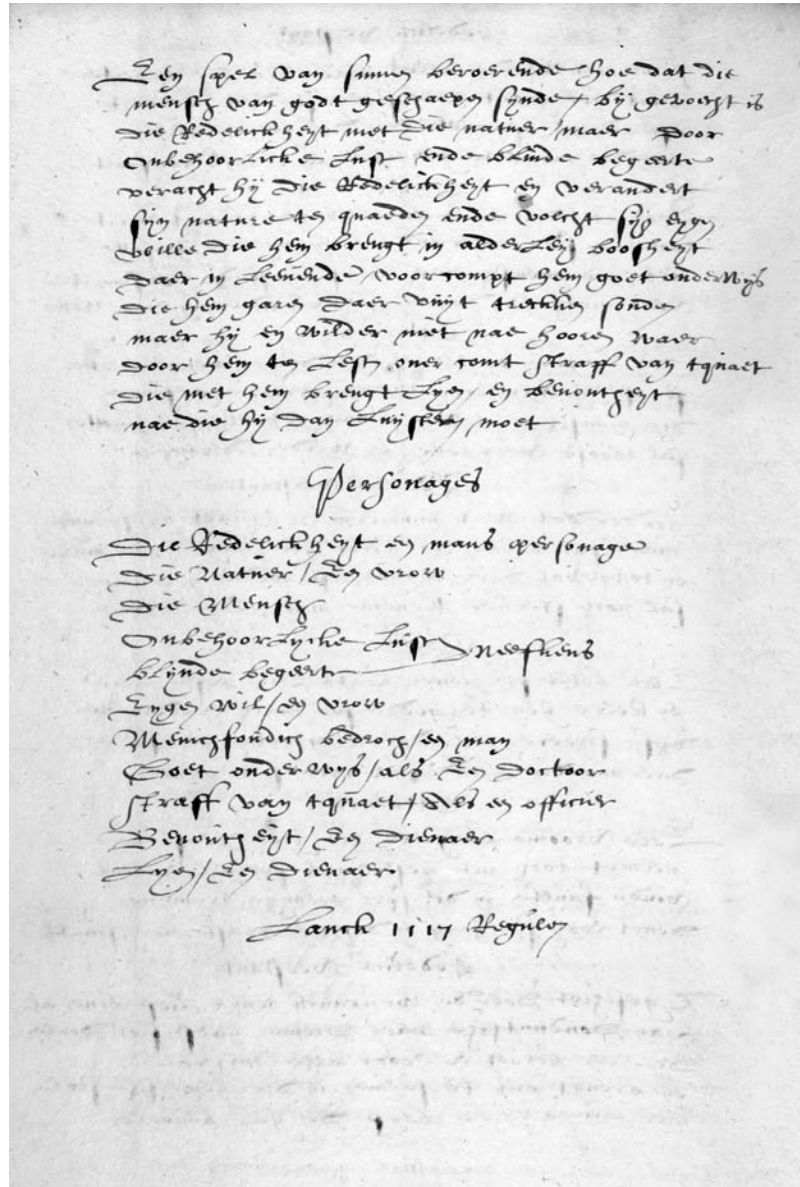 Een spel van sinnen beroerende hoe dat die
mensch van godt geschaepen synde / by gevoecht is
die Redelickheyt met die natuer / maer door
onbehoorlicke lust ende blinde begeerte
veracht hy die Redelickheyt en verandert
syn nature ten quaeden ende volcht syn eygen
wille die hem brengt in alderley boosheyt
daer in leevende / voorcompt hem goet onderwys
die hem garen daer vuyt trecken souden
maer hy en wilder niet nae hooren waer
door hem ten lesten over comt straff van tquaet
die met hem brengt Lyen / en benoutheyt
nae die hy dan luysteren moet
Personages
Die Redelickheyt en mans personage
Die Natuer / Een vrow
Die Mensch
Onbehoorlycke lust
blynde begeerte neefkens
Eygen wil / en vrow
Menichfoudich bedroch / en man
Goet onderwys / als Een doctoor
straff van tquaet / Als en officier
Benoutheyt / Een dienaer
Lyen / Een dienaer
Lanck 1117 Regulen